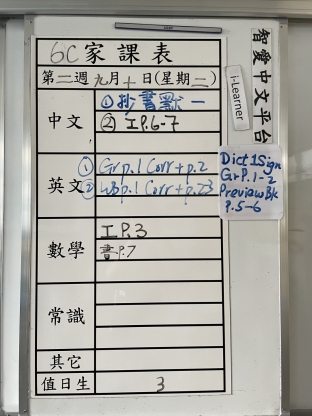 6C家課表
智愛中文平台
i-Learner
第二週九月十日(星期二)
中文
①抄書默一
②工P.6-7
英文
① Gr p.1 Corr + p.2
② WB p.1 Corr + p.23
Dict 1 Sign
Gr P.1-2
Preview Bk
P.5-6
數學
工P.3
書P.7
常識
其它
值日生
3